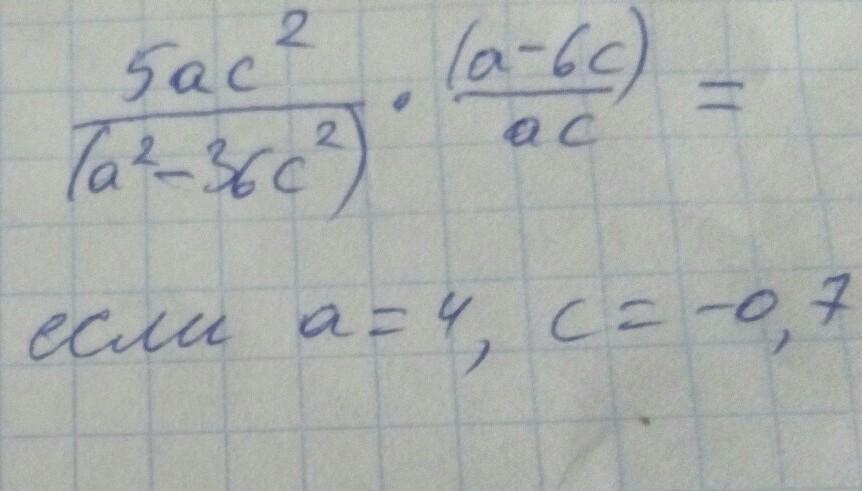 5ac²/(a²-36c²) · (a-6c)/ac =
если a=4, c=-0,7